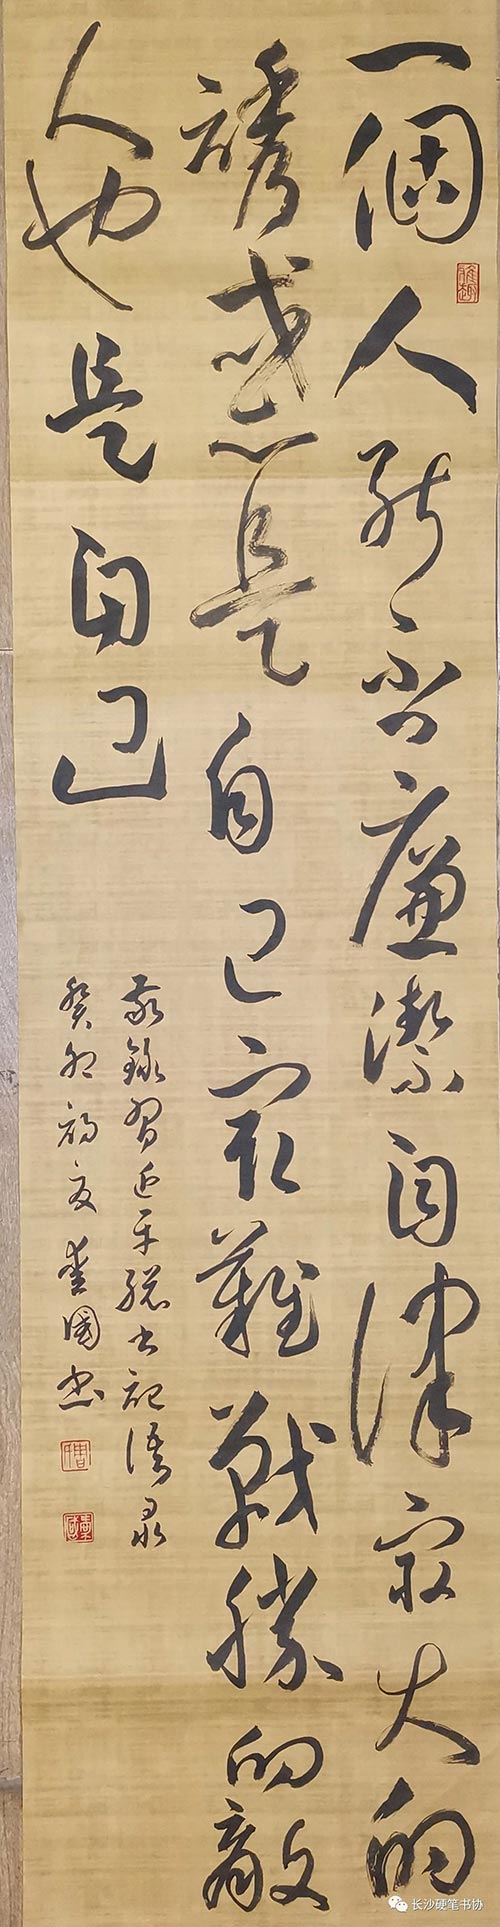 一個人能否廉潔自律最大的
誘惑是自己最難戰勝的敵
人也是自己
敬錄習近平總書記語录
癸卯初夏 國書
雅趣
长沙硬笔书协